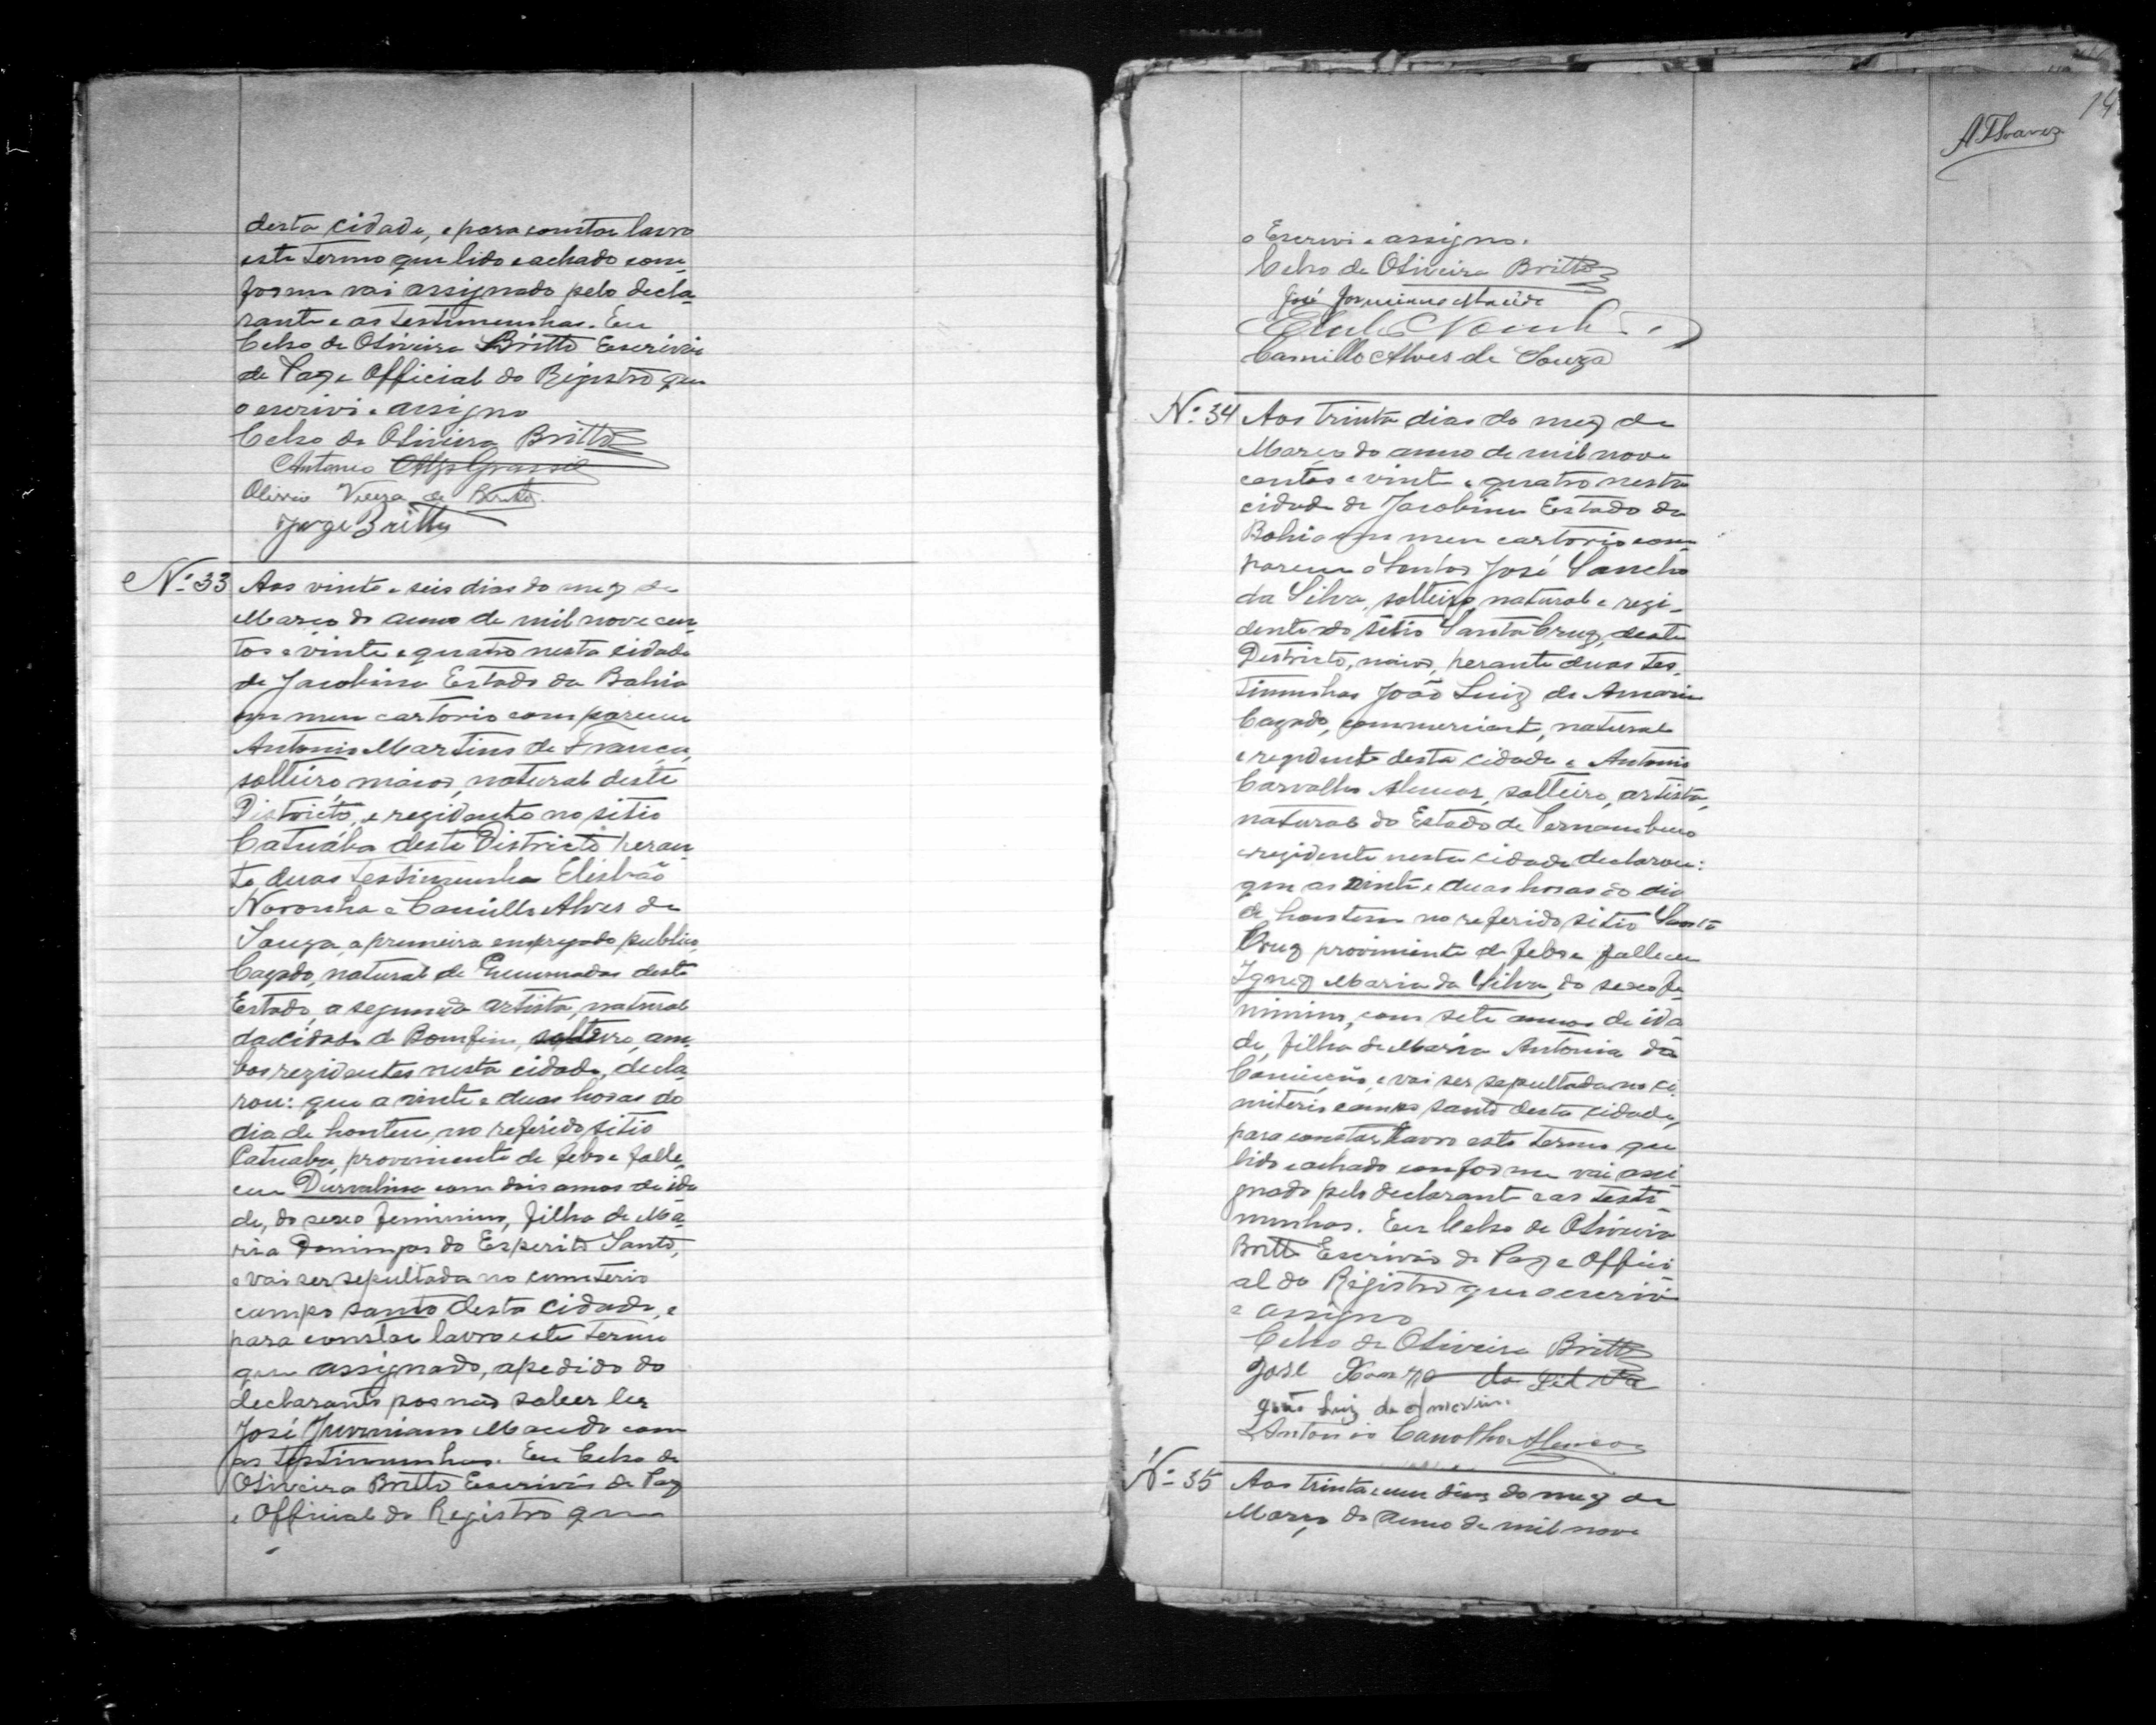 desta cidade, e para constar lavro
este Termo que lido e achado com-
forme vai assignado pelo decla-
rante e as testimunhas. Eu
Celso de Oliveira Britto Escrivão
de Paz e Official do Registro que
o escrivi e assigno
Celso de Oliveira Britto
Antonio
Olivio Vieira de Britto.
Jorge Britto
Nº 33 Aos vinte e seis dias do mez de
Março do anno de mil nove cen-
tos e vinte e quatro nesta cidade
de Jacobina Estado da Bahia
em meu cartorio compareceu
Antonio Martins de França,
solteiro, maior, natural deste
Districto, e rezidente no sitio
Catuába deste Districto peran-
te duas testimunha Elisbão
Noronha e Camillo Alves de
Souza, a premeira empregado publico
Cazado, natural de deste
Estado, a segunda artista, natural
da cidade de Bomfim, solteiro, am-
bos rezidentes nesta cidade, decla-
rou: que a vinte e duas horas do
dia de hontem, no referido sitio
Catuaba, provimiente de febre falle-
ceu Durvalina com dois annos de ida
de, do sexo feminino, filha de Ma-
ria Domingas do Esperito Santo,
e vai ser sepultada no cemeterio
campo santo desta cidade, e
para constar lavro este termo
que assignado, apedido do
declarante por não saber ler
José Juviniano Macedo com
as testimunhas. Eu Celso de
Oliveira Britto Escrivão de Paz
e Official do Registro que
14
A Tavares
o Escrivi e assigno.
Celso de Oliveira Britto
José Juviniano Macêdo
Camillo Alves de Souza
Nº 34 Aos trinta dias do mez de
Março do anno de mil nove
centos e vinte e quatro nesta
cidade de Jacobina Estado da
Bahia em meu cartorio com-
pareceu o Senhor José Sancho
da Silva, solteiro, natural e rezi-
dente do sitio Santa Cruz, deste
Districto, maior, perante duas tes-
timunhas João Luiz de Amorim
Cazado, commerciante, natural
e rezidente desta cidade e Antonio
Carvalho Alencar, solteiro, artista,
natural do Estado de Pernambuco
e rezidente nesta cidade declarou:
que as vinte e duas horas do dia
de hontem no referido sitio Santa
Cruz provimiente de febre falleceu
Ignez Maria da Silva, do sexo fe-
minino, com sete annos de ida
de, filha de Maria Antonia da
Conceição, e vai ser sepultada no ce-
miterio campo santo desta cidade,
para constar lavro este termo que
lido e achado conforme vai assi-
gnado pelo declarante e as testi-
munhas. Eu Celso de Oliveira
Britto Escrivão de Paz e Offici
al do Registro que o escrivi
e assigno
Celso de Oliveira Britto
José da Silva
João Luiz de Amorim.
Antonio Carvalho Alencar
Nº 35 Aos trinta e um dias do mez de
Março do anno de mil nove